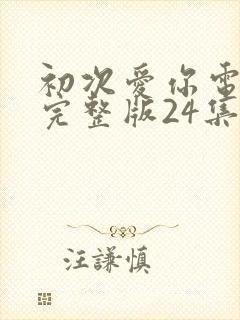 初次爱你電
完整版24集
汪謙慎